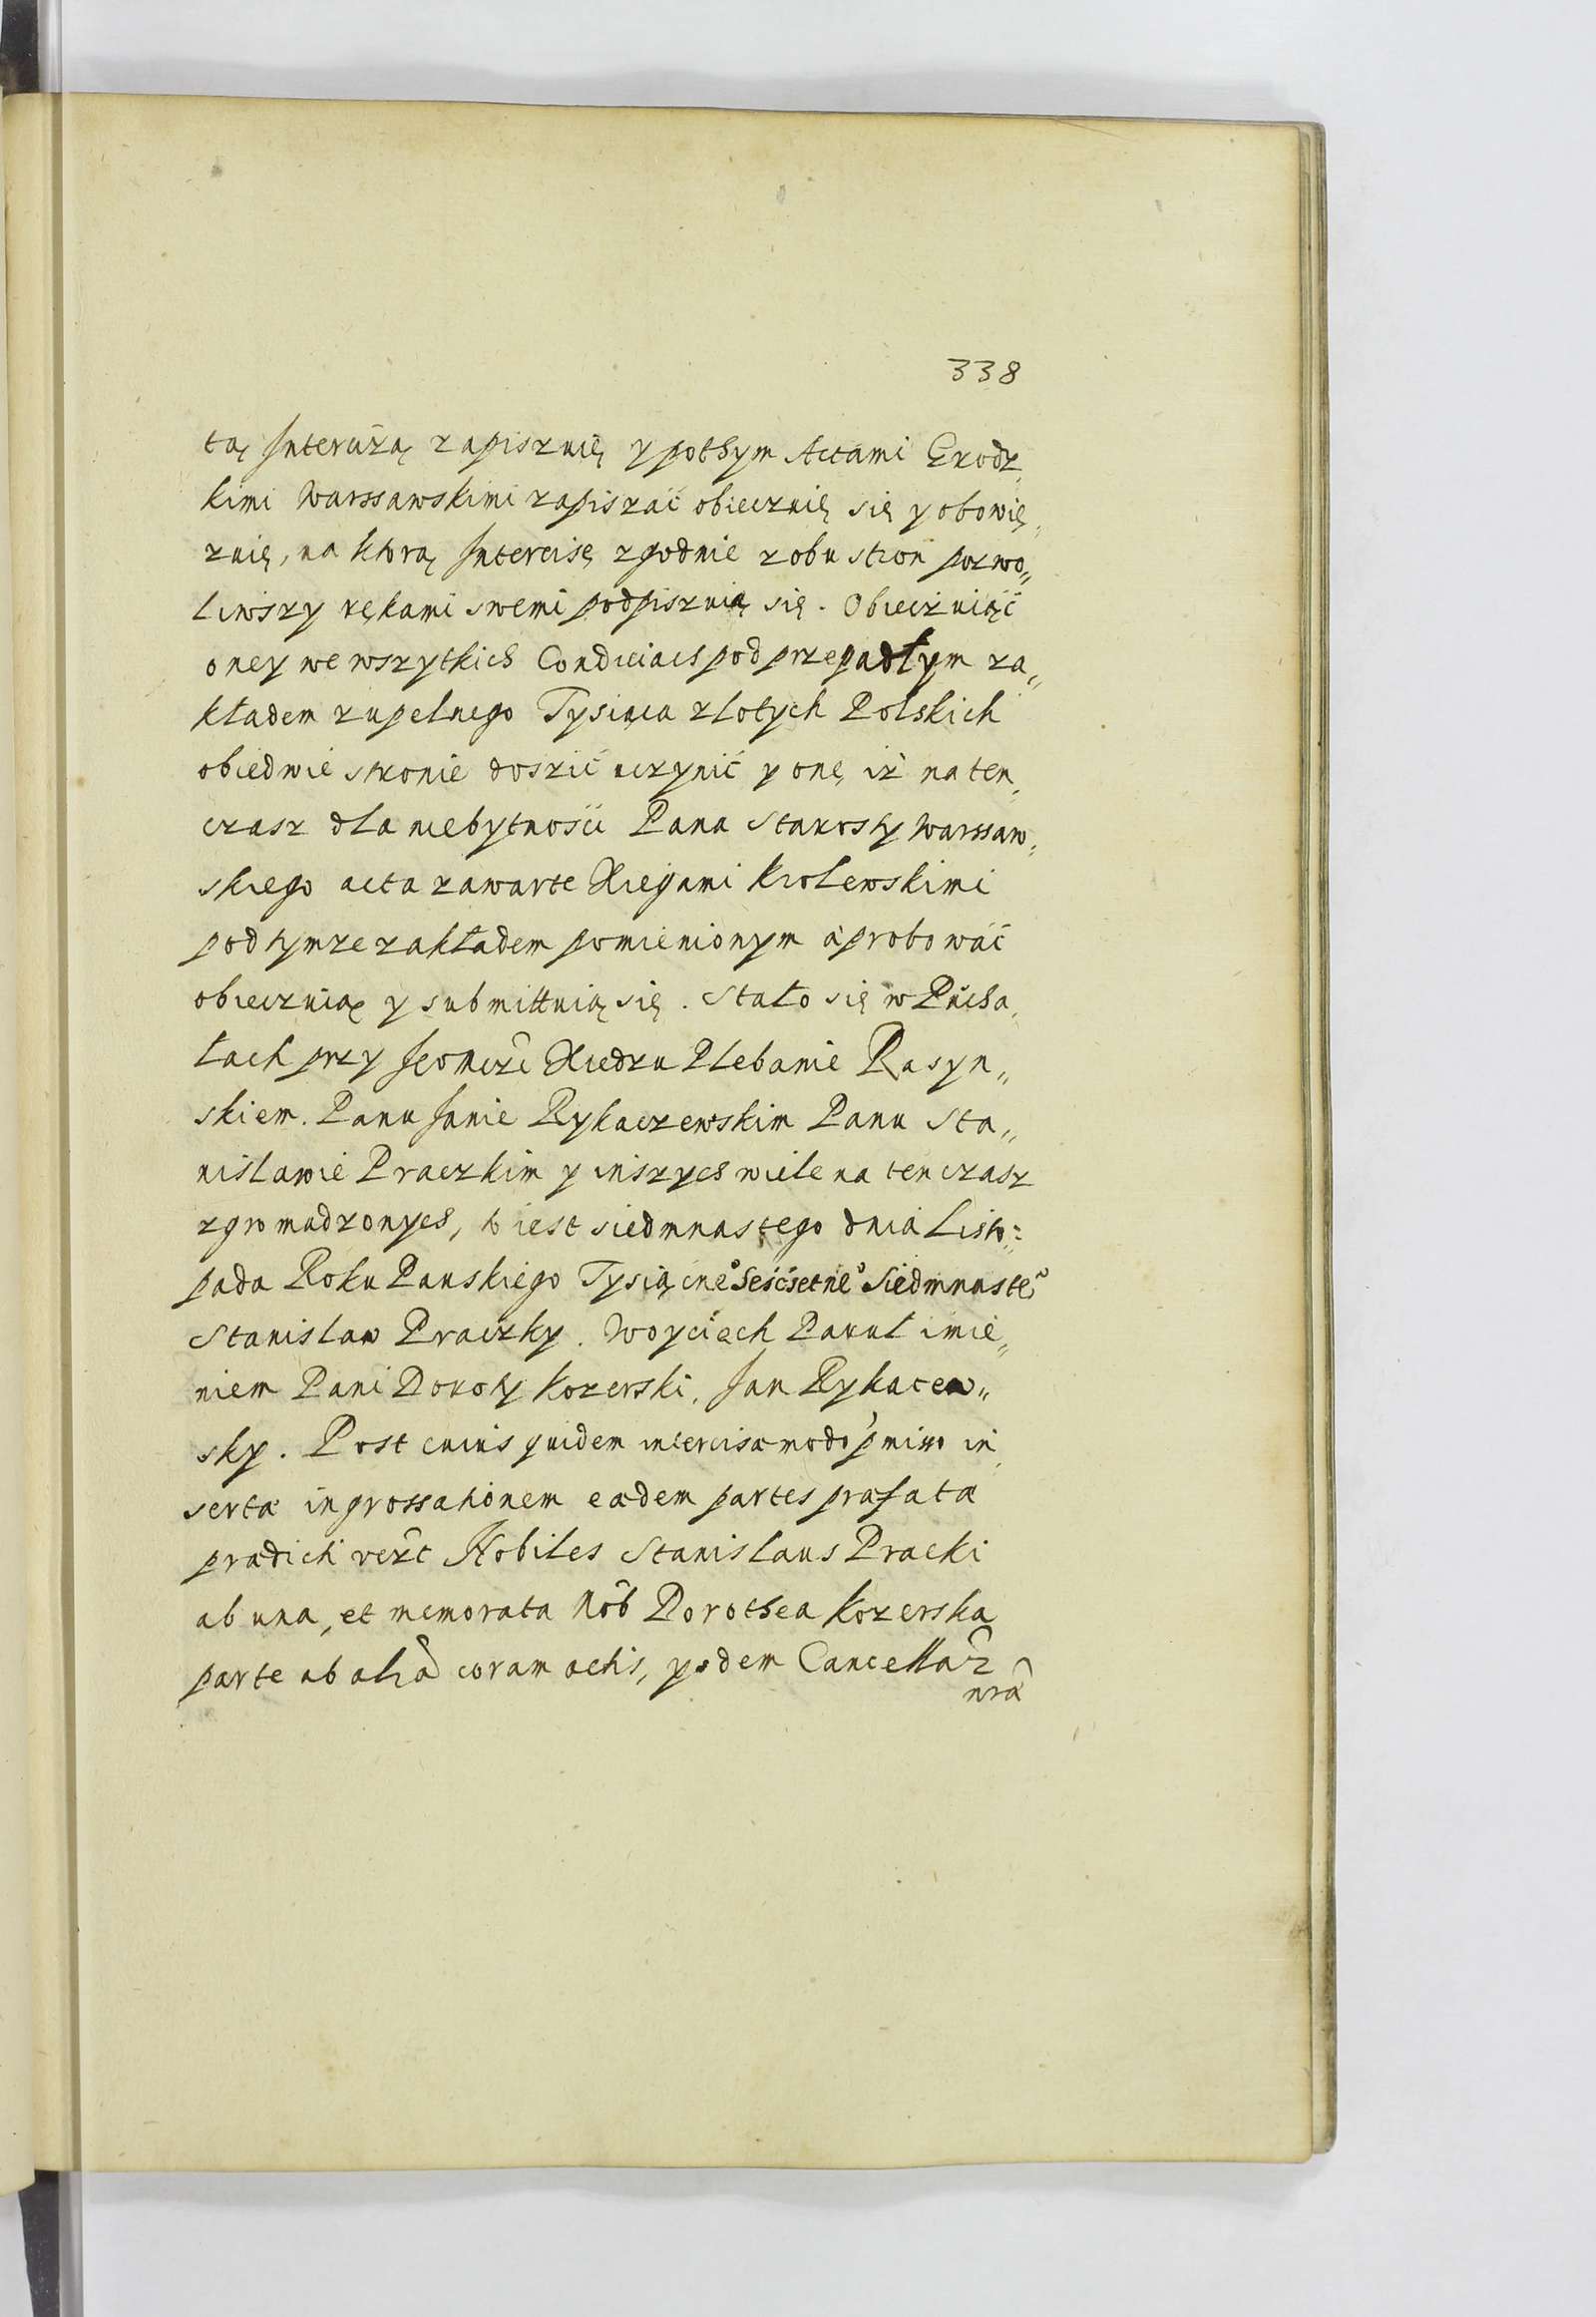 338
tą Intercizą zapiszuię y pothym Actami Grodz,
kimi Warssawskimi zapiszać obieczuię się y obowię,
zuię, na ktorą Intercisę zgodnie z obu stron pozwo„
liwszy rękami swemi podpiszuią się. Obieczuiąć
oney we wszytkich Condiciach pod przepadłym za„
kładem zupełnego Tysiąca złotych Polskich
obiedwie stronie doszić uczynić y onę iż na ten,
czasz dla niebytnosci Pana Starosty Warssaw,
skiego acta zawarte Xięgami Krolewskimi
pod tymze zakładem pomienionym aprobować
obieczuią y submittuią się. Stało się w Pucha,
łach przy Jeo Mczi Xiedzu Plebanie Rasyn„
skiem. Panu Janie Rykaczewskim Panu Sta„
nisławie Praczkim y inszych wiele na ten czasz
zgromadzonych, to iest siedmnastego dnia Listo:
pada Roku Panskiego Tysiącne° Seśćsetne° Siedmnaste°
Stanislaw Praczky. Woyciech Pauul imie„
niem Pani Doroty Kozerski. Jan Rykacew„
sky. Post cuius quidem intercisæ modo pmisso in,
sertæ ingrossationem eædem partes præfatæ
prædicti vero Nobiles Stanislaus Pracki
ab una, et memorata Nob Dorothea Kozerska
parte ab alia coram actis, Cancellar
nra